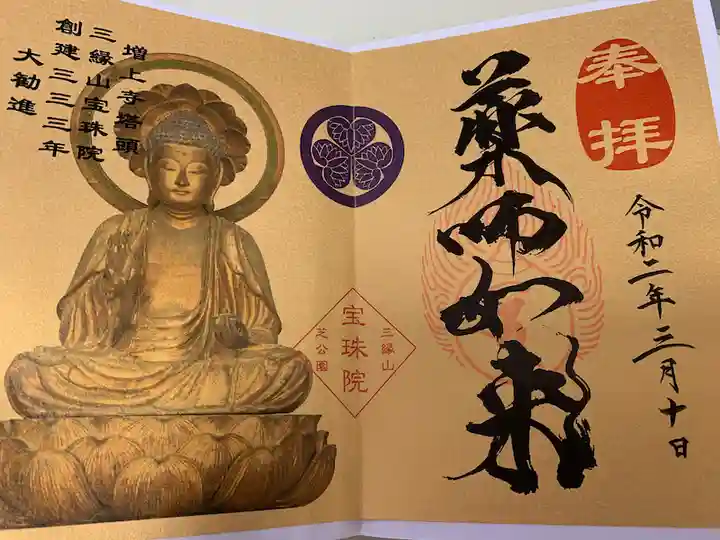 奉拝
薬師如来
令和二年三月十日
増上寺塔頭
三縁山宝珠院
創建三三三年
大勧進
三縁山
宝珠院
芝公園